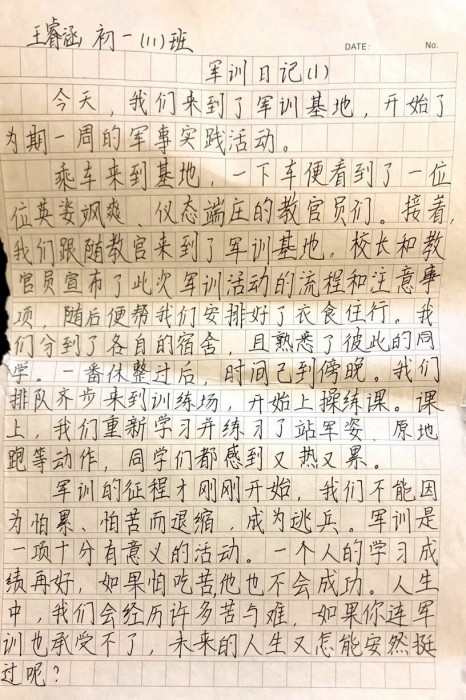 王睿涵 初一(11)班
DATE: No.
军训日记(1)
今天，我们来到了军训基地，开始了
为期一周的军事实践活动。
乘车来到基地，一下车便看到了一位
位英姿飒爽、仪态端庄的教官员们。接着，
我们跟随教官来到了军训基地，校长和教
官员宣布了此次军训活动的流程和注意事
项，随后便帮我们安排好了衣食住行。我
们分到了各自的宿舍，且熟悉了彼此的同
学。一番休整过后，时间已到傍晚。我们
排队齐步来到训练场，开始上操练课。课
上，我们重新学习并练习了站军姿、原地
跑等动作，同学们都感到又热又累。
军训的征程才刚刚开始，我们不能因
为怕累、怕苦而退缩，成为逃兵。军训是
一项十分有意义的活动。一个人的学习成
绩再好，如果怕吃苦他也不会成功。人生
中，我们会经历许多苦与难，如果你连军
训也承受不了，未来的人生又怎能安然挺
过呢？